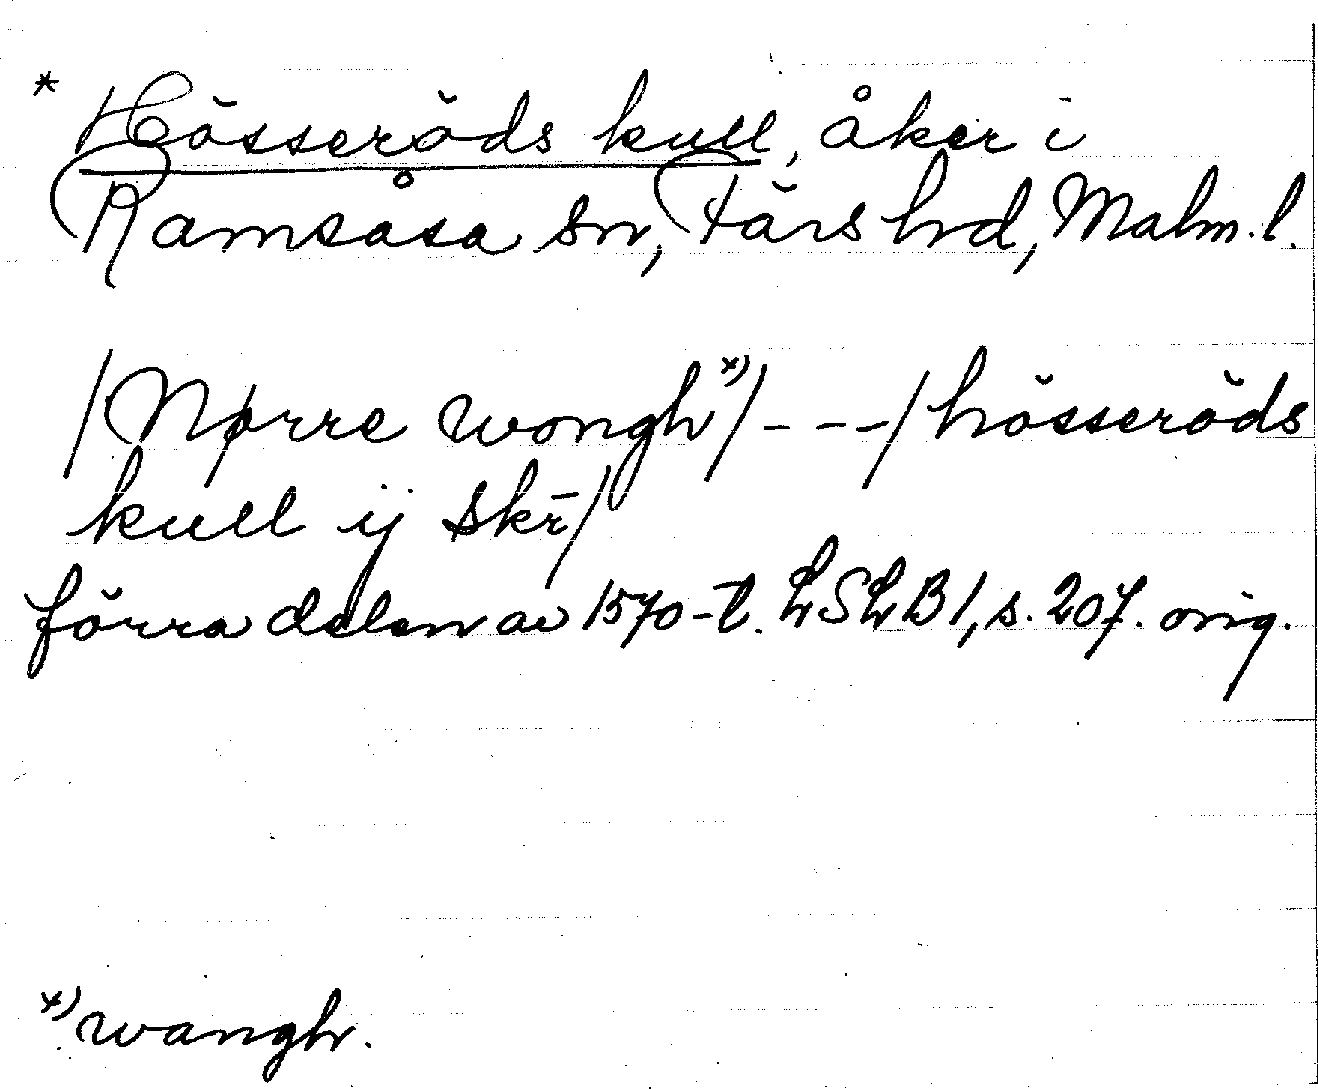 * Hösseröds kull, åker i
Ramsåsa sn, Färs hrd, Malm. l.
/Nørre wongh*)/---/hösseröds
kull ij Skr̄/
förra delen av 1570-t. LSLB1, s. 207. orig.
*) wangh.